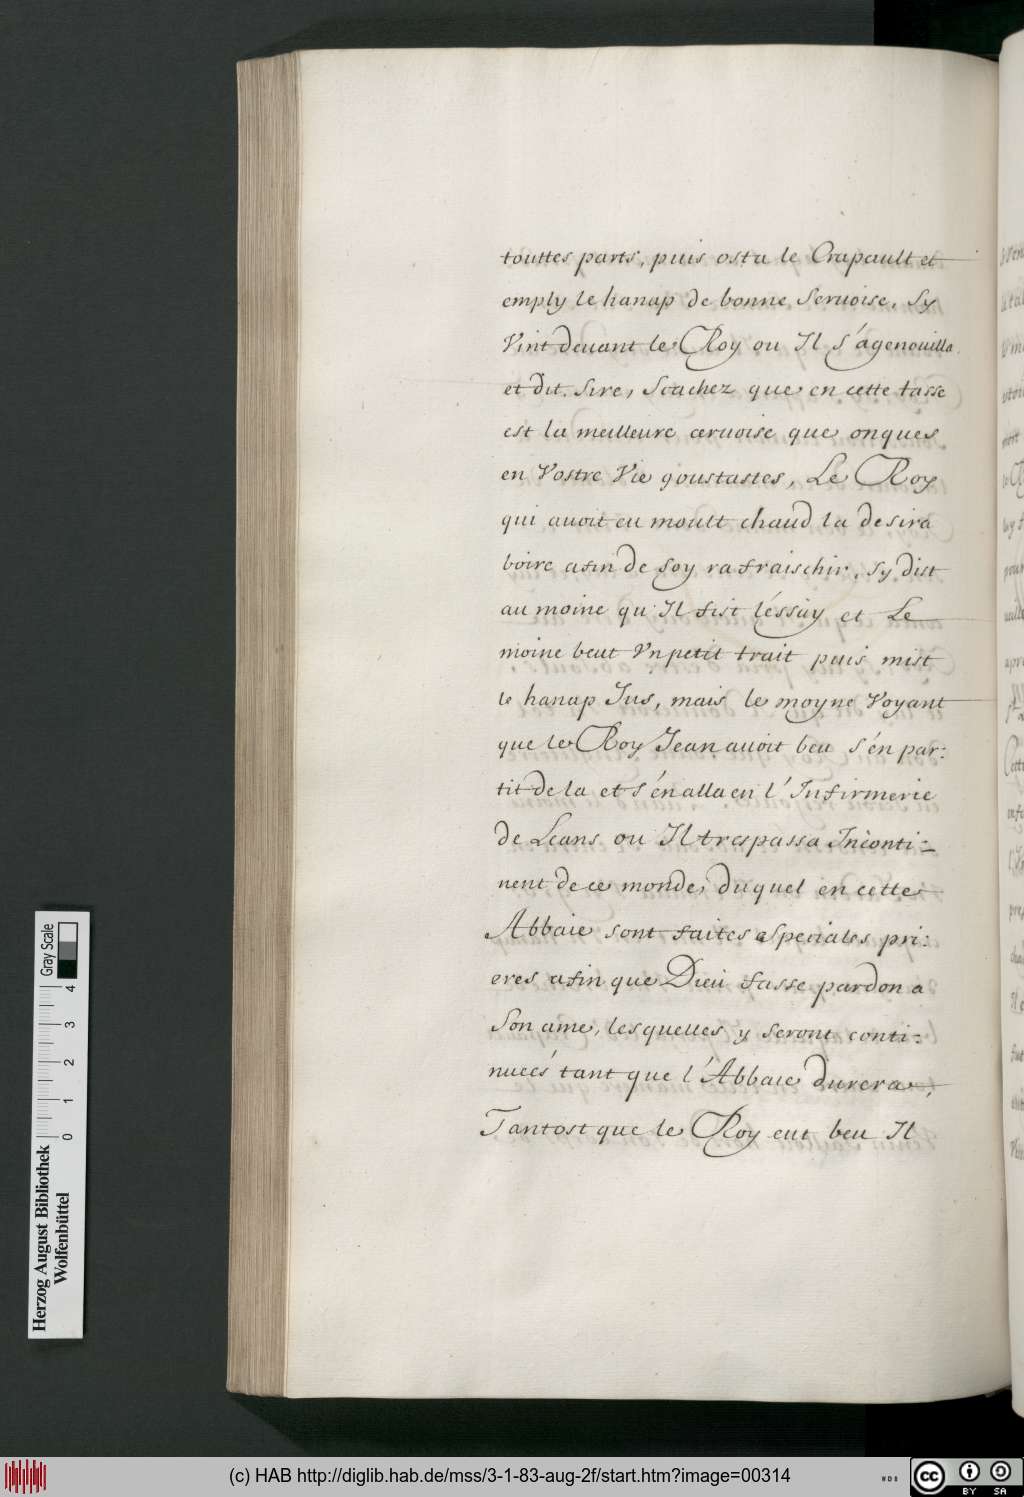 touttes parts, puis osta le Crapault et
emply le hanap de bonne Seruoise, Sy
Vint deuant le Roy ou Il S'agenouilla.
et dit. Sire, Scachez que en cette tasse
est la meilleure ceruoise que onques
en Vostre Vie goustastes, Le Roy
qui auoit eu moult chaud la desira
boire afin de soy rafraischir, Sy dist
au moine qu'Il fist l'éssay et Le
moine beut Vn petit trait puis mist
le hanap Jus, mais le moyne Voyant
que le Roy Jean auoit beu s'én par:
tit de la et s'én alla en l'Infirmerie
de Leans ou Il trespassa Inconti:
nent de ce monde, duquel en cette
Abbaie sont faites especiales pri:
eres afin que Dieu fasse pardon a
Son ame, lesquelles y seront conti:
nueés tant que l'Abbaie durera,
Tantost que le Roy eut beu Il
Gray Scale
4 3 2 1 0
Herzog August Bibliothek
Wolfenbüttel
(c) HAB http://diglib.hab.de/mss/3-1-83-aug-2f/start.htm?image=00314
WDB
cc BY SA